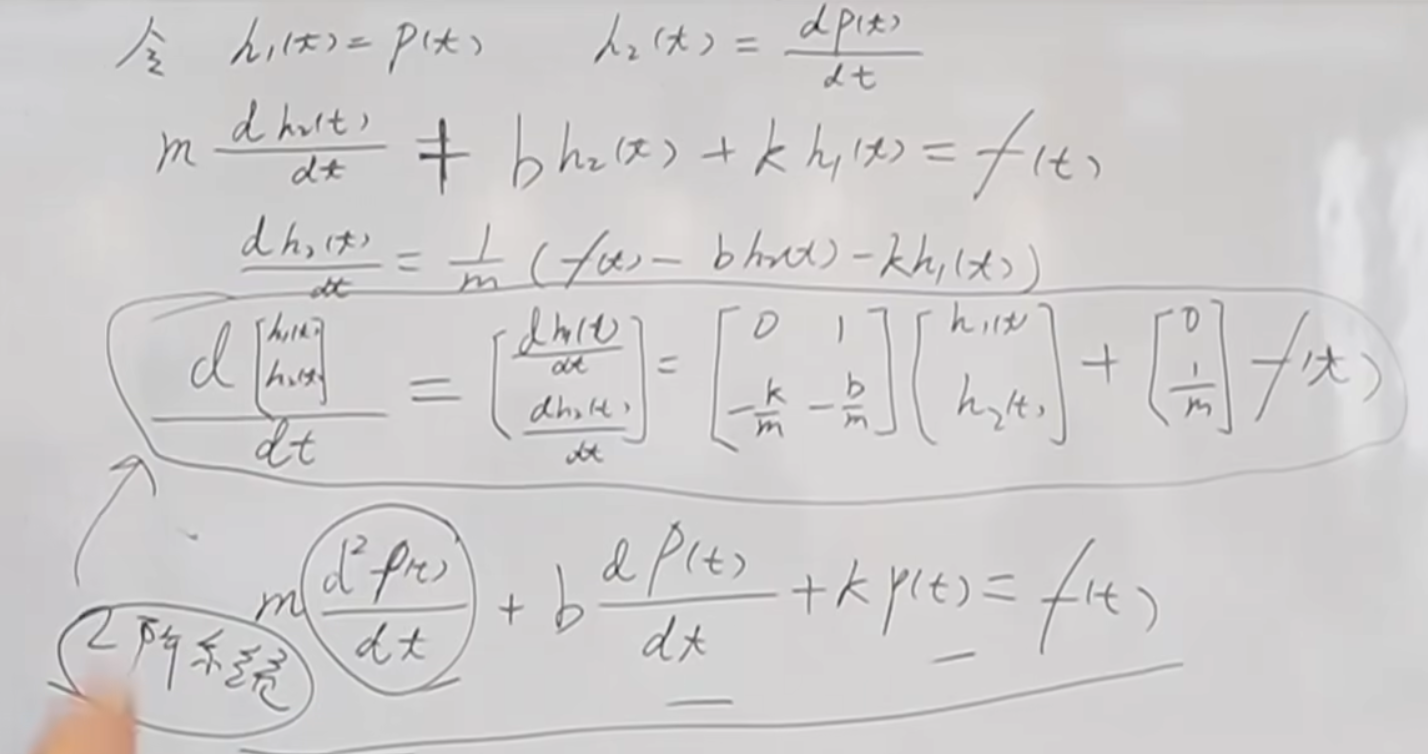 令 h₁(t) = p(t) h₂(t) = dp(t)/dt
m dh₂(t)/dt + b h₂(t) + k h₁(t) = f(t)
dh₂(t)/dt = 1/m (f(t) - b h₂(t) - k h₁(t))
d[h₁(t) h₂(t)]/dt = [dh₁(t)/dt dh₂(t)/dt] = [0 1 -k/m -b/m] [h₁(t) h₂(t)] + [0 1/m] f(t)
m d²p(t)/dt + b dp(t)/dt + k p(t) = f(t)
2阶系统